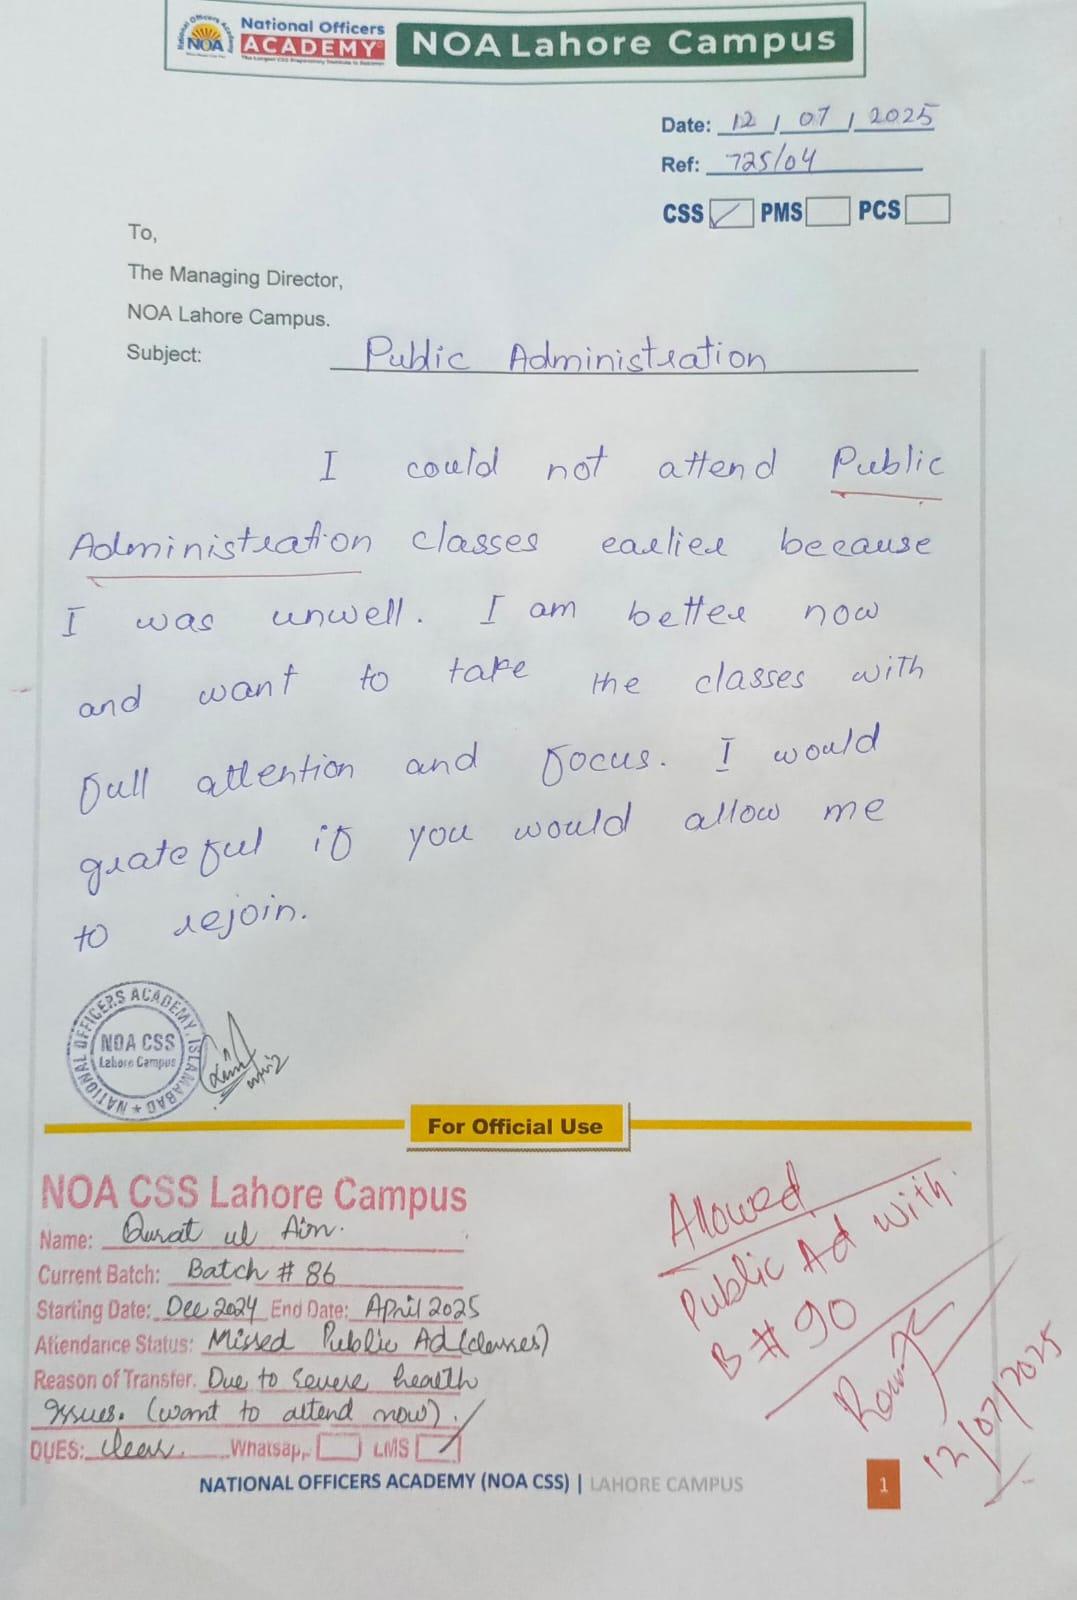 National Officers Academy
NOA
National Officers
ACADEMY
The Largest CSS Preparatory Institute in Pakistan
NOA Lahore Campus
Date: 12 / 07 / 2025
Ref: 725/04
CSS PMS PCS
To,
The Managing Director,
NOA Lahore Campus.
Subject: Public Administration
I could not attend Public
Administration classes earlier because
I was unwell. I am better now
and want to take the classes with
full attention and focus. I would
grateful if you would allow me
to rejoin.
NATIONAL OFFICERS ACADEMY, ISLAMABAD
NOA CSS
Lahore Campus
For Official Use
NOA CSS Lahore Campus
Name: Qurat ul Ain.
Current Batch: Batch # 86
Starting Date: Dec 2024 End Date: April 2025
Attendance Status: Missed Public Ad (classes)
Reason of Transfer. Due to severe health
issues. (want to attend now).
DUES: clear. Whatsap, LMS
Allowed
Public Ad with
B # 90
12/07/2025
NATIONAL OFFICERS ACADEMY (NOA CSS) | LAHORE CAMPUS
1